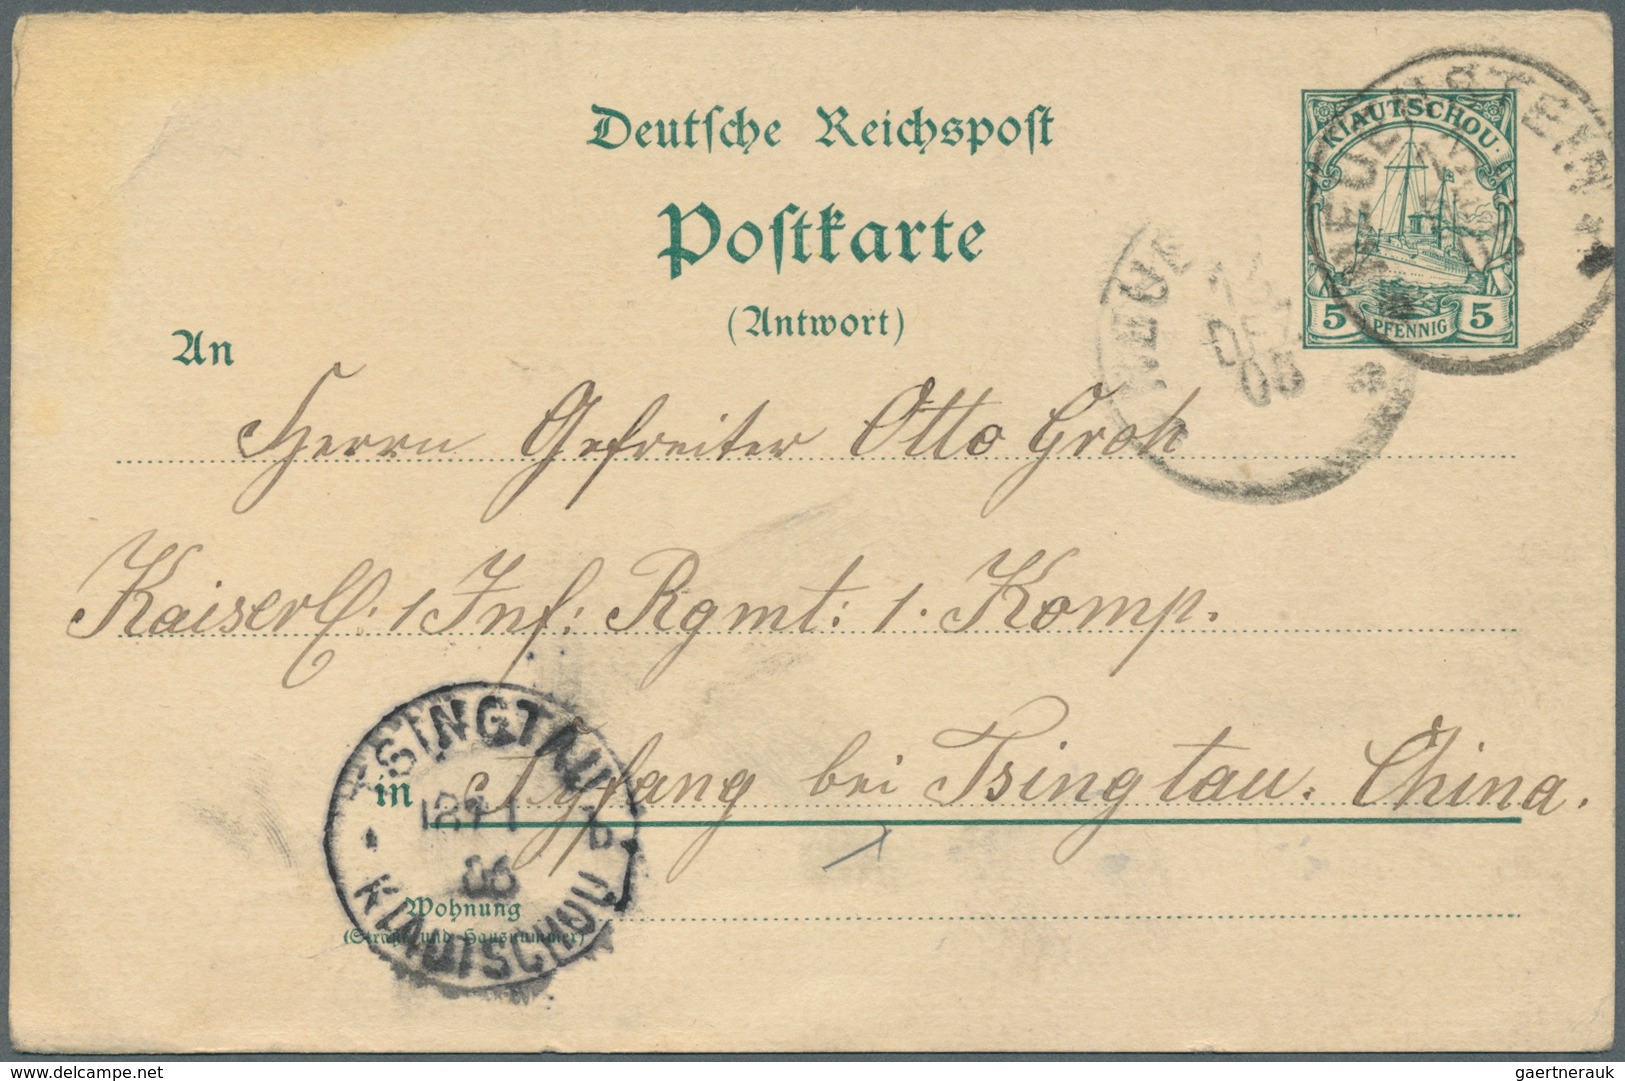 Deutsche Reichspost
Postkarte
(Antwort)
KIAUTSCHOU
5 PFENNIG 5
DEZ
05
An
Herrn Gefreiter Otto Groh
Kaiserl. 1 Inf: Rgmt: 1. Komp.
in Syfang bei Tsingtau. China.
TSINGTAU
06
KIAUTSCHOU
Wohnung
(Straße und Hausnummer)
delcampe.net
gaertnerauk